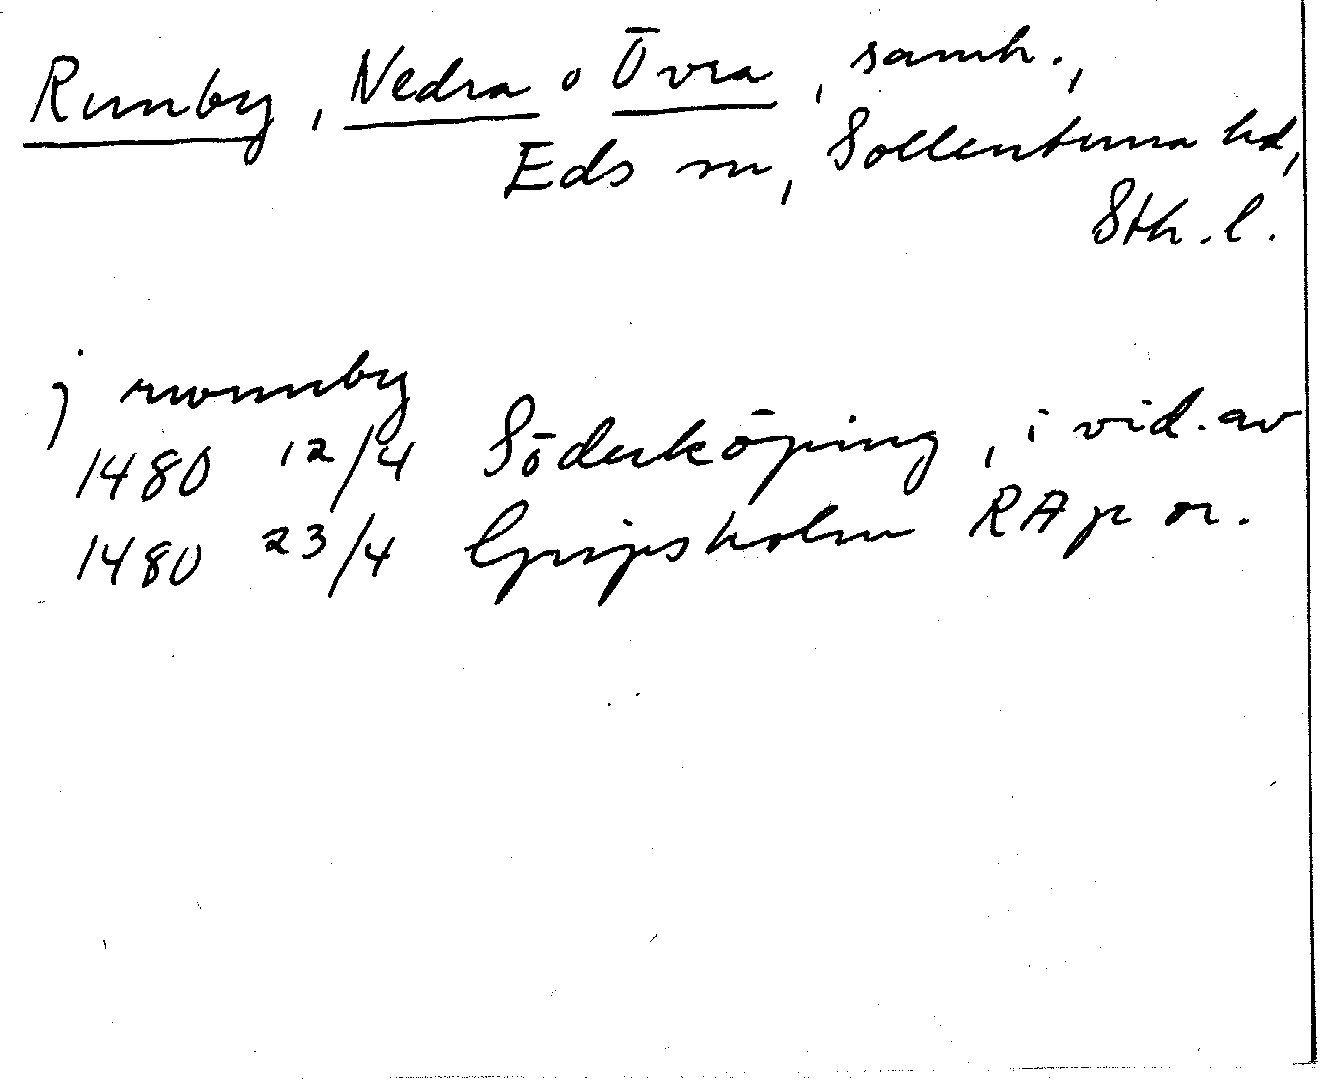 Runby, Nedra o Övra, samh.,
Eds sn, Sollentuna hd,
Sth. l.
j rwnnby
1480 12/4 Söderköping, i vid. av
1480 23/4 Gripsholm RAp or.